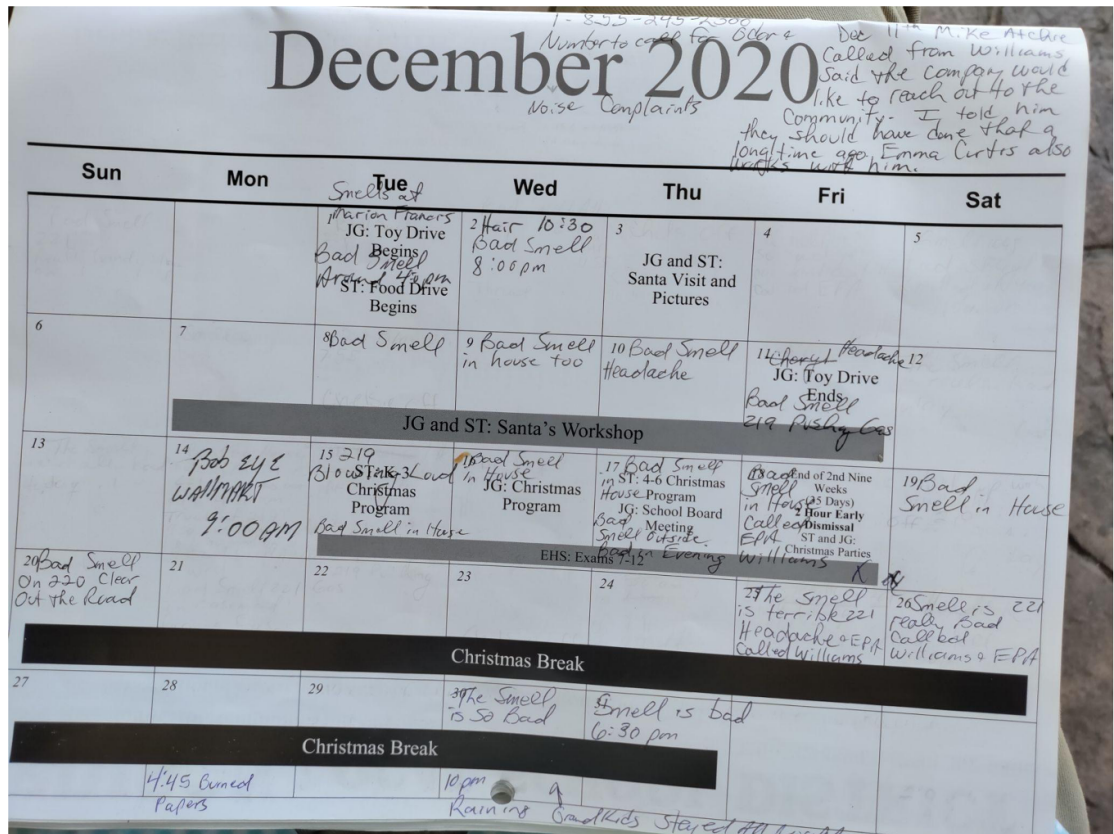 1-855-245-2300
Number to call for Odor &
Noise Complaints
December 2020
Dec 11th Mike Atchie
Called from Williams
Said the company would
like to reach out to the
Community. I told him
they should have done that a
long time ago. Emma Curtis also
works with him.
Sun Mon Tue Wed Thu Fri Sat
Smells at
1 Marion Franors
JG: Toy Drive
Begins
Bad Smell
Around 4:00pm
ST: Food Drive
Begins
2 Hair 10:30
Bad Smell
8:00pm
3
JG and ST:
Santa Visit and
Pictures
4
5
6
7
8 Bad Smell
9 Bad Smell
in house too
10 Bad Smell
Headache
11 Cheryl Headache
JG: Toy Drive
Ends
Bad Smell
219 Pushing Gas
12
JG and ST: Santa's Workshop
13
14 Bob EYE
WALLMART
9:00AM
15 219
Blowing Loud
ST: K-3
Christmas
Program
Bad Smell in House
16 Bad Smell
in House
JG: Christmas
Program
17 Bad Smell
in House
ST: 4-6 Christmas
Program
JG: School Board
Meeting
Bad
Smell outside.
Bad in Evening
18 Bad
Smell
in House
Called
EPA
Williams X
End of 2nd Nine
Weeks
(35 Days)
2 Hour Early
Dismissal
ST and JG:
Christmas Parties
19 Bad
Smell in House
EHS: Exams 7-12
20 Bad Smell
On 220 Clear
Out the Road
21
22
23
24
25 The Smell
is terrible 221
Headache & EPA
Called Williams
26 Smell is 221
really Bad
Called
Williams & EPA
Christmas Break
27
28
29
30 The Smell
is so Bad
31 Smell is bad
6:30 pm
Christmas Break
4:45 Burned
Papers
10pm
Raining
Grandkids Stayed All